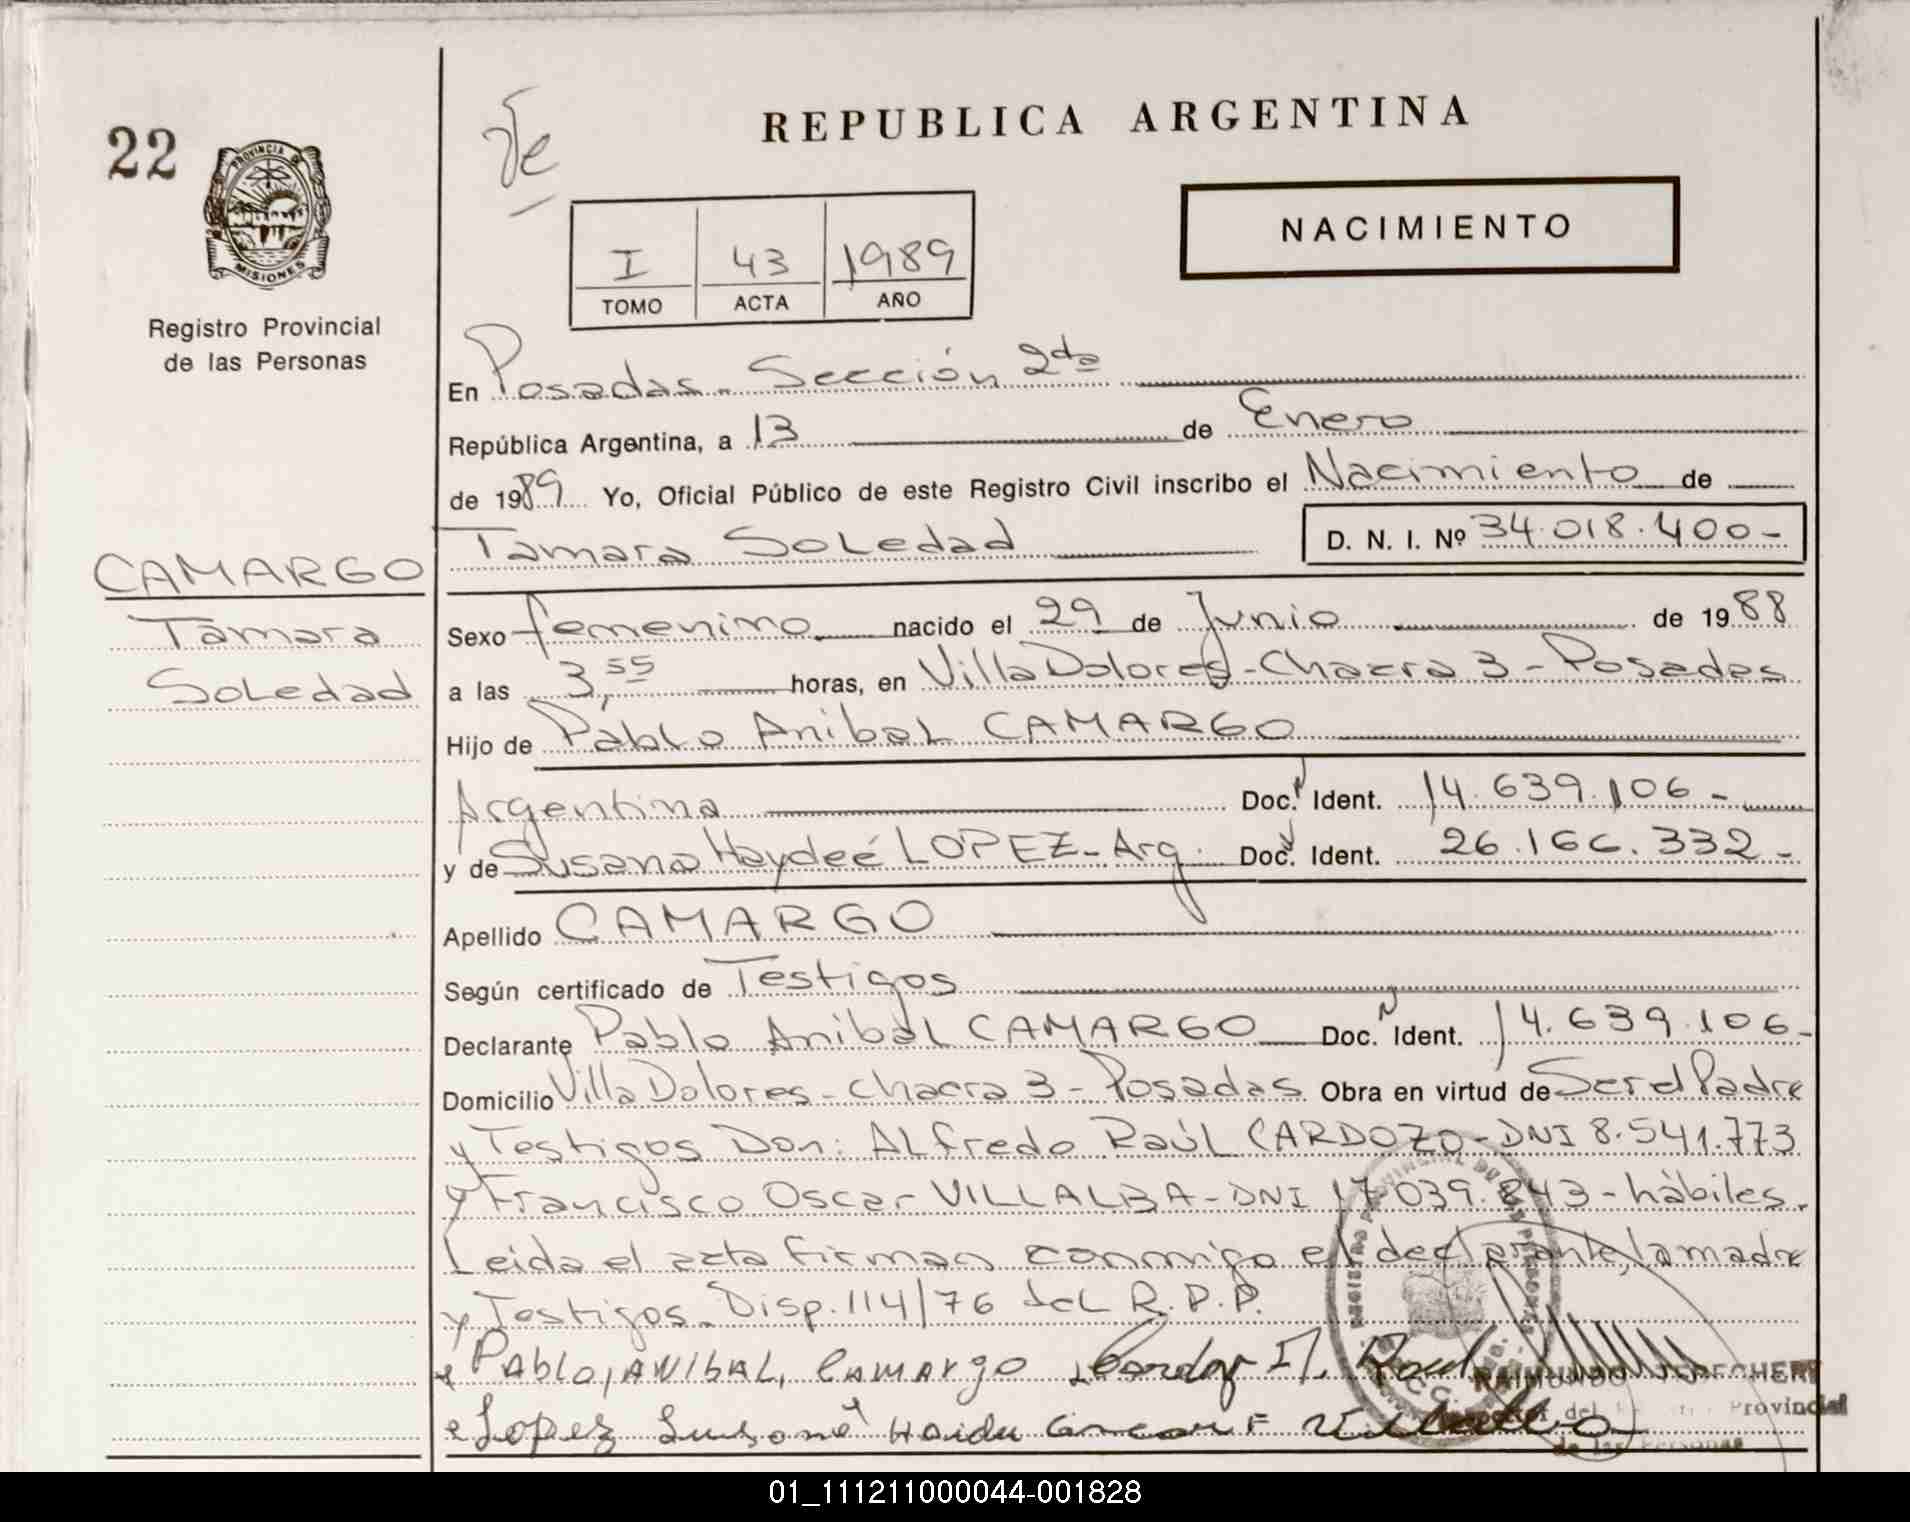 22
PROVINCIA DE
MISIONES
Registro Provincial
de las Personas
CAMARGO
Tamara
Soledad
REPUBLICA ARGENTINA
NACIMIENTO
I 43 1989
TOMO ACTA AÑO
En Posadas - Sección 2da
República Argentina, a 13 de Enero
de 1989 Yo, Oficial Público de este Registro Civil inscribo el Nacimiento de
Tamara Soledad D. N. I. Nº 34.018.400-
Sexo femenino nacido el 29 de Junio de 1988
a las 3,55 horas, en Villa Dolores - Chacra 3 - Posadas
Hijo de Pablo Anibal CAMARGO
Argentina Doc. Ident. 14.639.106-
y de Susana Haydeé LOPEZ - Arg. Doc. Ident. 26.166.332-
Apellido CAMARGO
Según certificado de Testigos
Declarante Pablo Anibal CAMARGO Doc. Ident. 14.639.106-
Domicilio Villa Dolores - Chacra 3 - Posadas Obra en virtud de Ser el Padre
y Testigos Don: Alfredo Raúl CARDOZO - DNI 8.541.773
y Francisco Oscar VILLALBA - DNI 17.039.843 - hábiles.
Leida el acta firman conmigo el declarante, la madre
y Testigos. Disp. 114/76 del R.P.P.
Pablo, ANIBAL, CAMARGO Raul
Lopez
RAIMUNDO
del Provincial
de las Personas
01_111211000044-001828